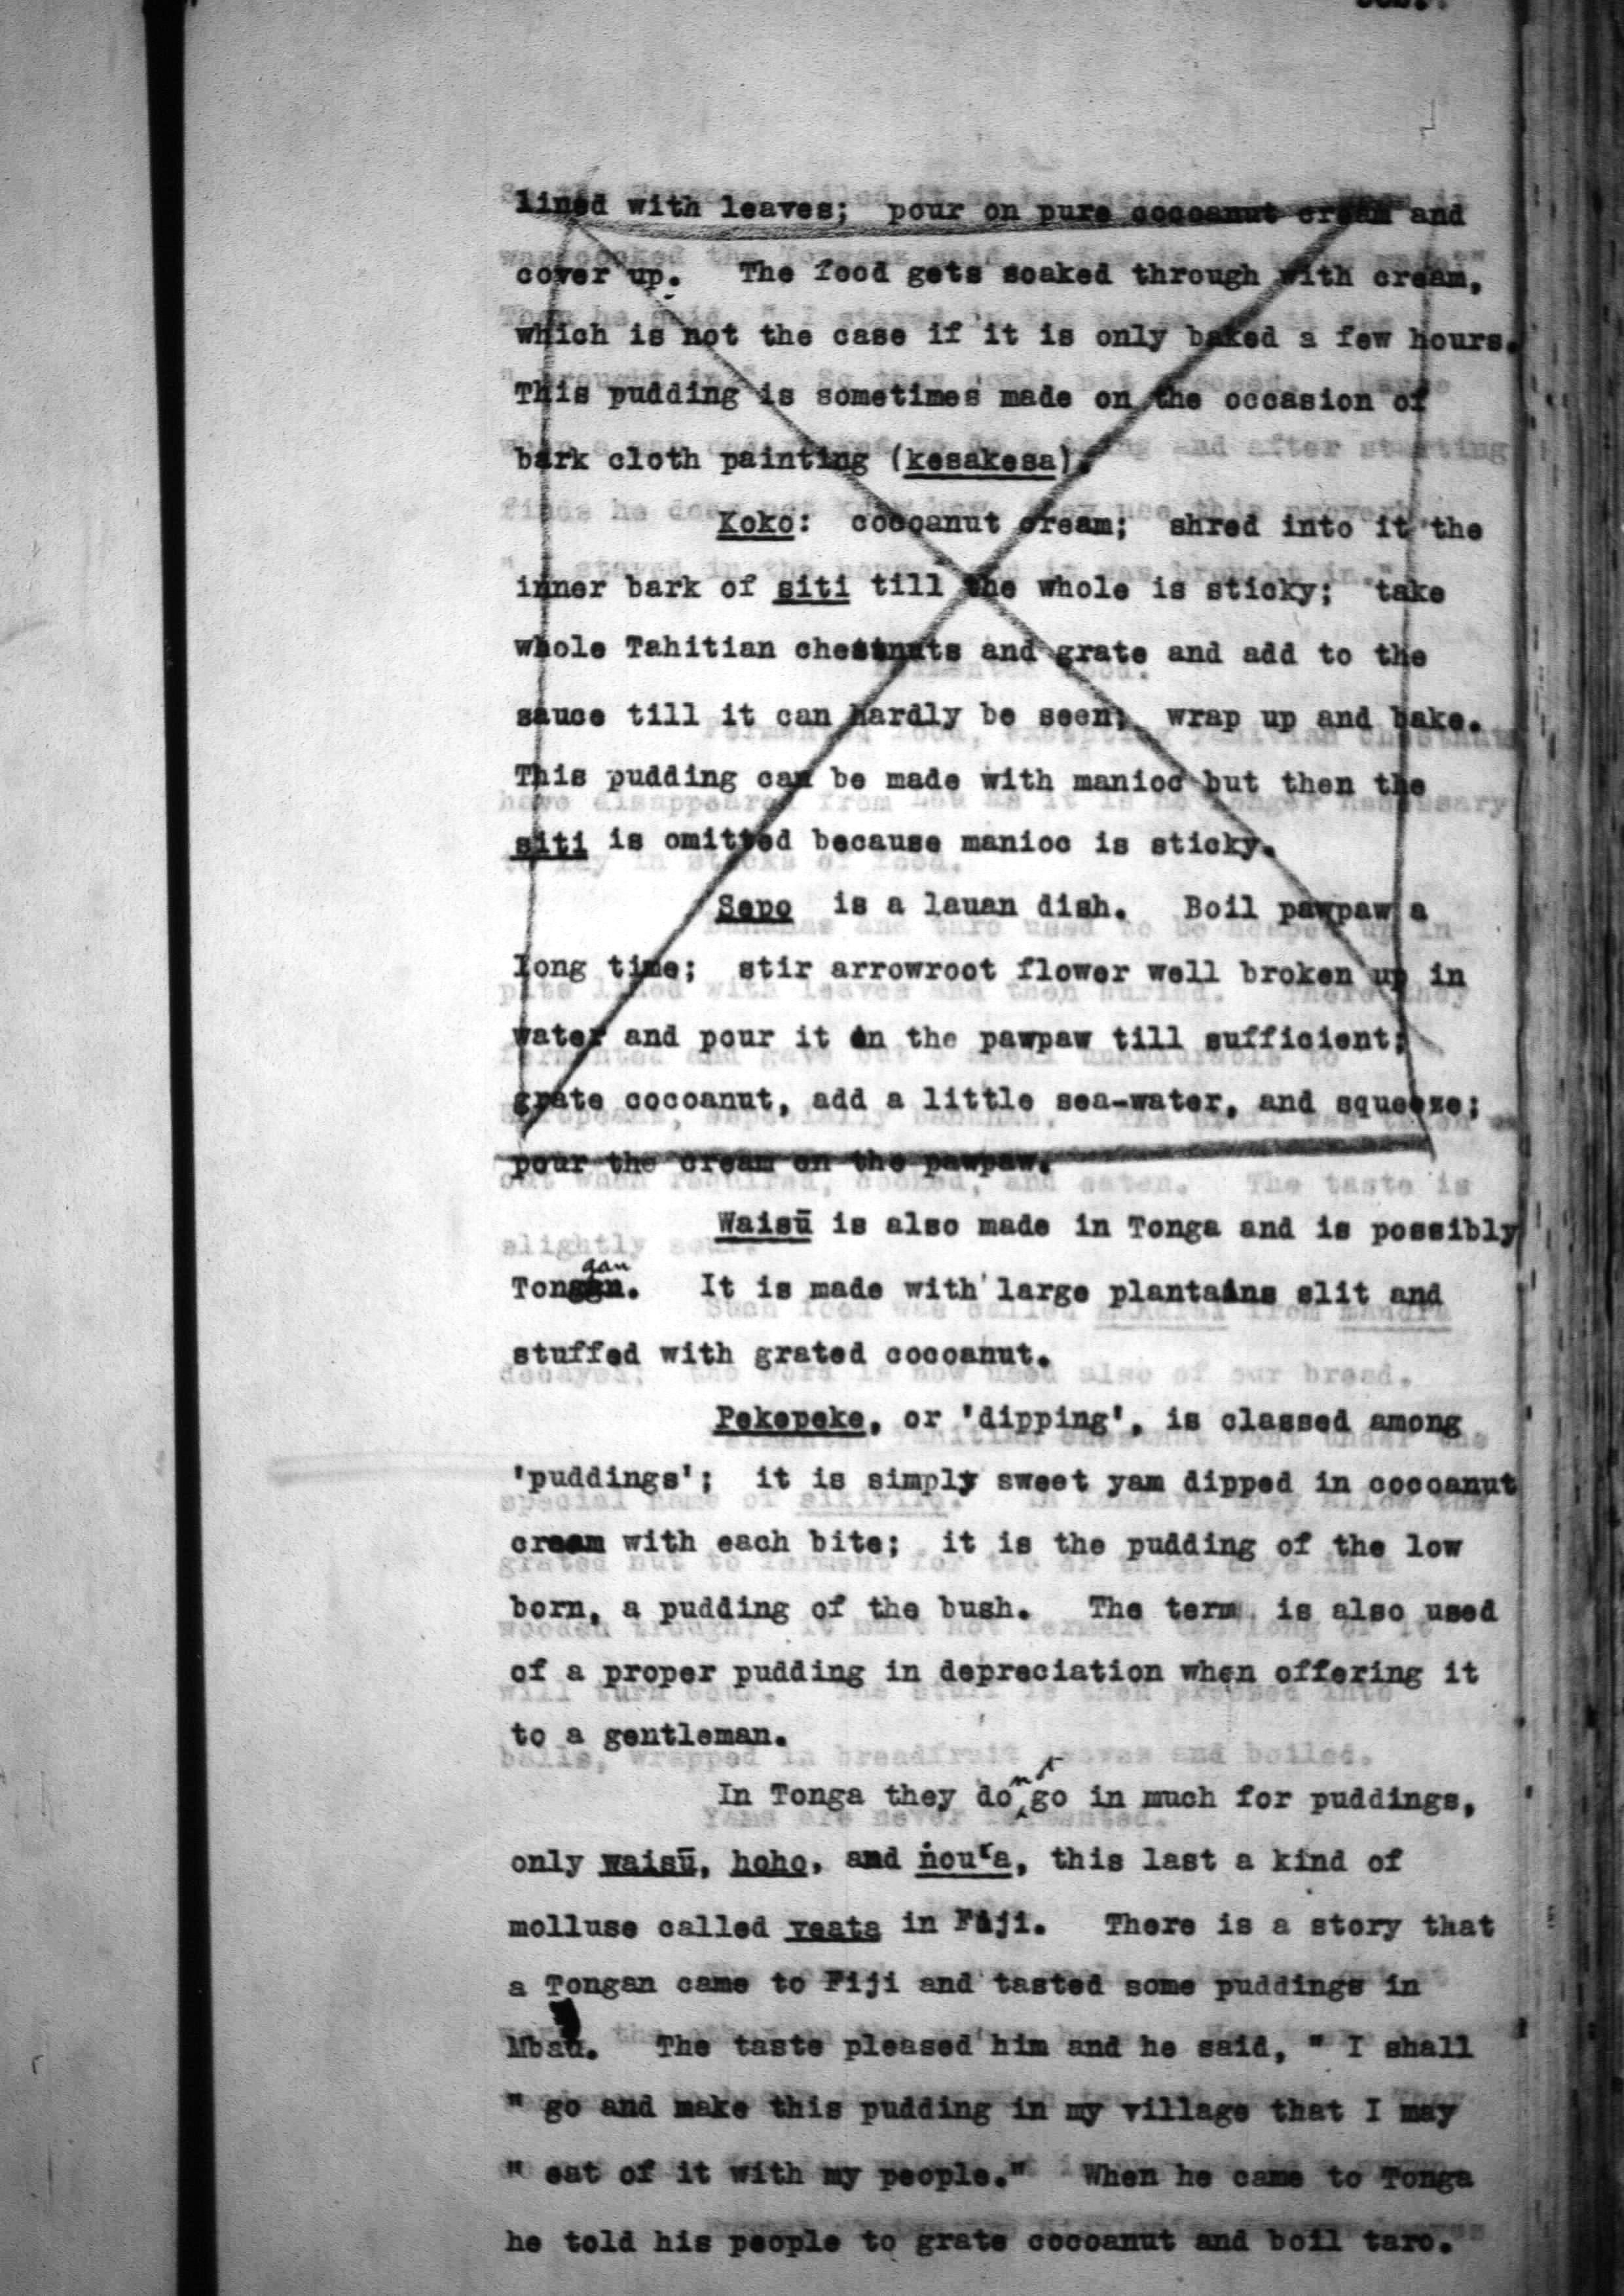 lined with leaves; pour on pure cocoanut cream and
cover up. The food gets soaked through with cream,
which is not the case if it is only baked a few hours.
This pudding is sometimes made on the occasion of
bark cloth painting (kesakesa).
Koko: cocoanut cream; shred into it the
inner bark of siti till the whole is sticky; take
whole Tahitian chestnuts and grate and add to the
sauce till it can hardly be seen; wrap up and bake.
This pudding can be made with manioc but then the
siti is omitted because manioc is sticky.
Sepo is a lauan dish. Boil pawpaw a
long time; stir arrowroot flower well broken up in
water and pour it on the pawpaw till sufficient;
grate cocoanut, add a little sea-water, and squeeze;
pour the cream on the pawpaw.
Waisū is also made in Tonga and is possibly
Tongan. It is made with large plantains slit and
stuffed with grated cocoanut.
Pekepeke, or 'dipping', is classed among
'puddings'; it is simply sweet yam dipped in cocoanut
cream with each bite; it is the pudding of the low
born, a pudding of the bush. The term is also used
of a proper pudding in depreciation when offering it
to a gentleman.
In Tonga they do not go in much for puddings,
only waisū, hoho, and
this last a kind of
molluse called veata in Fiji. There is a story that
a Tongan came to Fiji and tasted some puddings in
Mbau. The taste pleased him and he said, " I shall
" go and make this pudding in my village that I may
" eat of it with my people." When he came to Tonga
he told his people to grate cocoanut and boil taro.